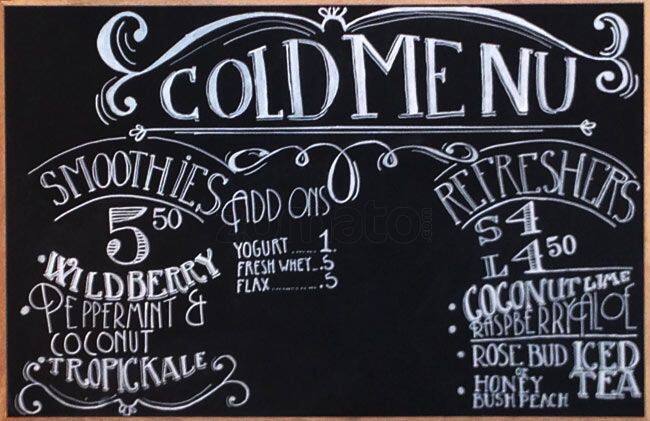 COLD MENU
SMOOTHIES
5 50
• WILDBERRY
• PEPPERMINT &
COCONUT
• TROPICKALE
ADD ONS
YOGURT ...... 1.
FRESH WHEY ... .5
FLAX .......... .5
REFRESHERS
S 4
L 4 50
• COCONUT LIME
• RASPBERRY ALOE
• ROSE BUD ICED
OR
• HONEY TEA
BUSH PEACH
zomato.com